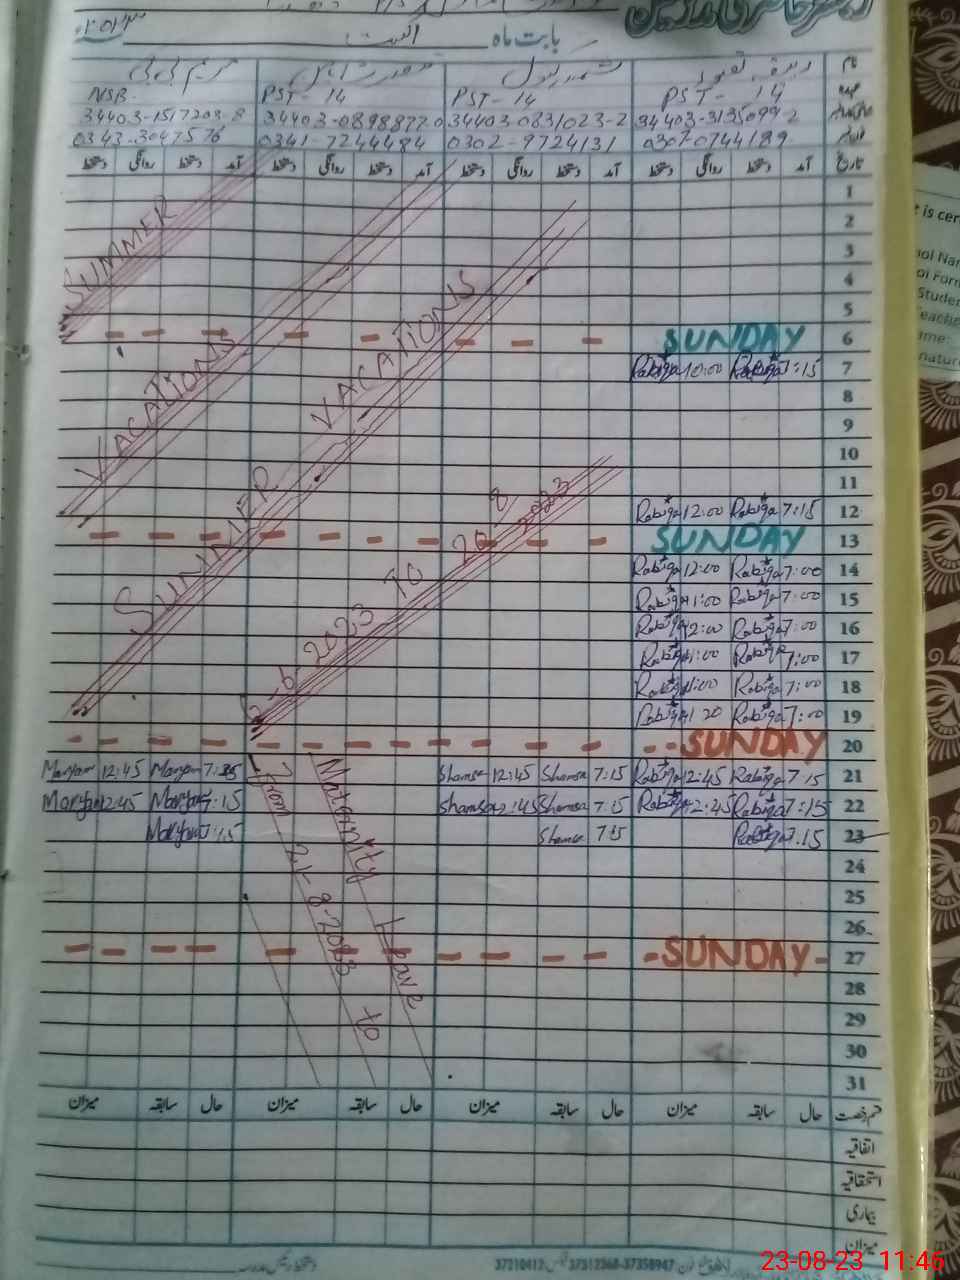 بابت ماہ
نام
NSB. PST- 14 PST- 14 PST- 14
34403-1517203-8 34403-0898877-0 34403-0831023-2 34403-3135099-2
0343-3047576 0341-7244484 0302-9724131 0307-0744189
دستخط روانگی دستخط آمد دستخط روانگی دستخط آمد دستخط روانگی دستخط آمد دستخط روانگی دستخط آمد تاریخ
1
2
3
4
5
SUNDAY 6
Rabiqa 10:00 Rabiqa 7:15 7
8
9
10
11
Rabiqa 12:00 Rabiqa 7:15 12
SUNDAY 13
Rabiqa 12:00 Rabiqa 7:00 14
Rabiqa 1:00 Rabiqa 7:00 15
Rabiqa 12:00 Rabiqa 7:00 16
Rabiqa 1:00 Rabiqa 7:00 17
Rabiqa 1:00 Rabiqa 7:00 18
Rabiqa 1 20 Rabiqa 7:00 19
SUNDAY 20
Maryam 12:45 Maryam 7:15 Shamsa 12:45 Shamsa 7:15 Rabiqa 12:45 Rabiqa 7:15 21
Maryam 12:45 Maryam 7:15 Shamsa 12:45 Shamsa 7:15 Rabiqa 12:45 Rabiqa 7:15 22
Maryam 7:15 Shamsa 7:15 Rabiqa 7:15 23
24
25
26
SUNDAY 27
28
29
30
31
SUMMER
VACATIONS
SUMMER VACATIONS
-6-2023 TO 20 8 2023
Maternity Leave
From 21-8-2023 to
میزان سابقہ حال میزان سابقہ حال میزان سابقہ حال میزان سابقہ حال قسم رخصت
اتفاقیہ
استحقاقیہ
بیماری
میزان
37210412 37312368-37358947
23-08-23 11:46